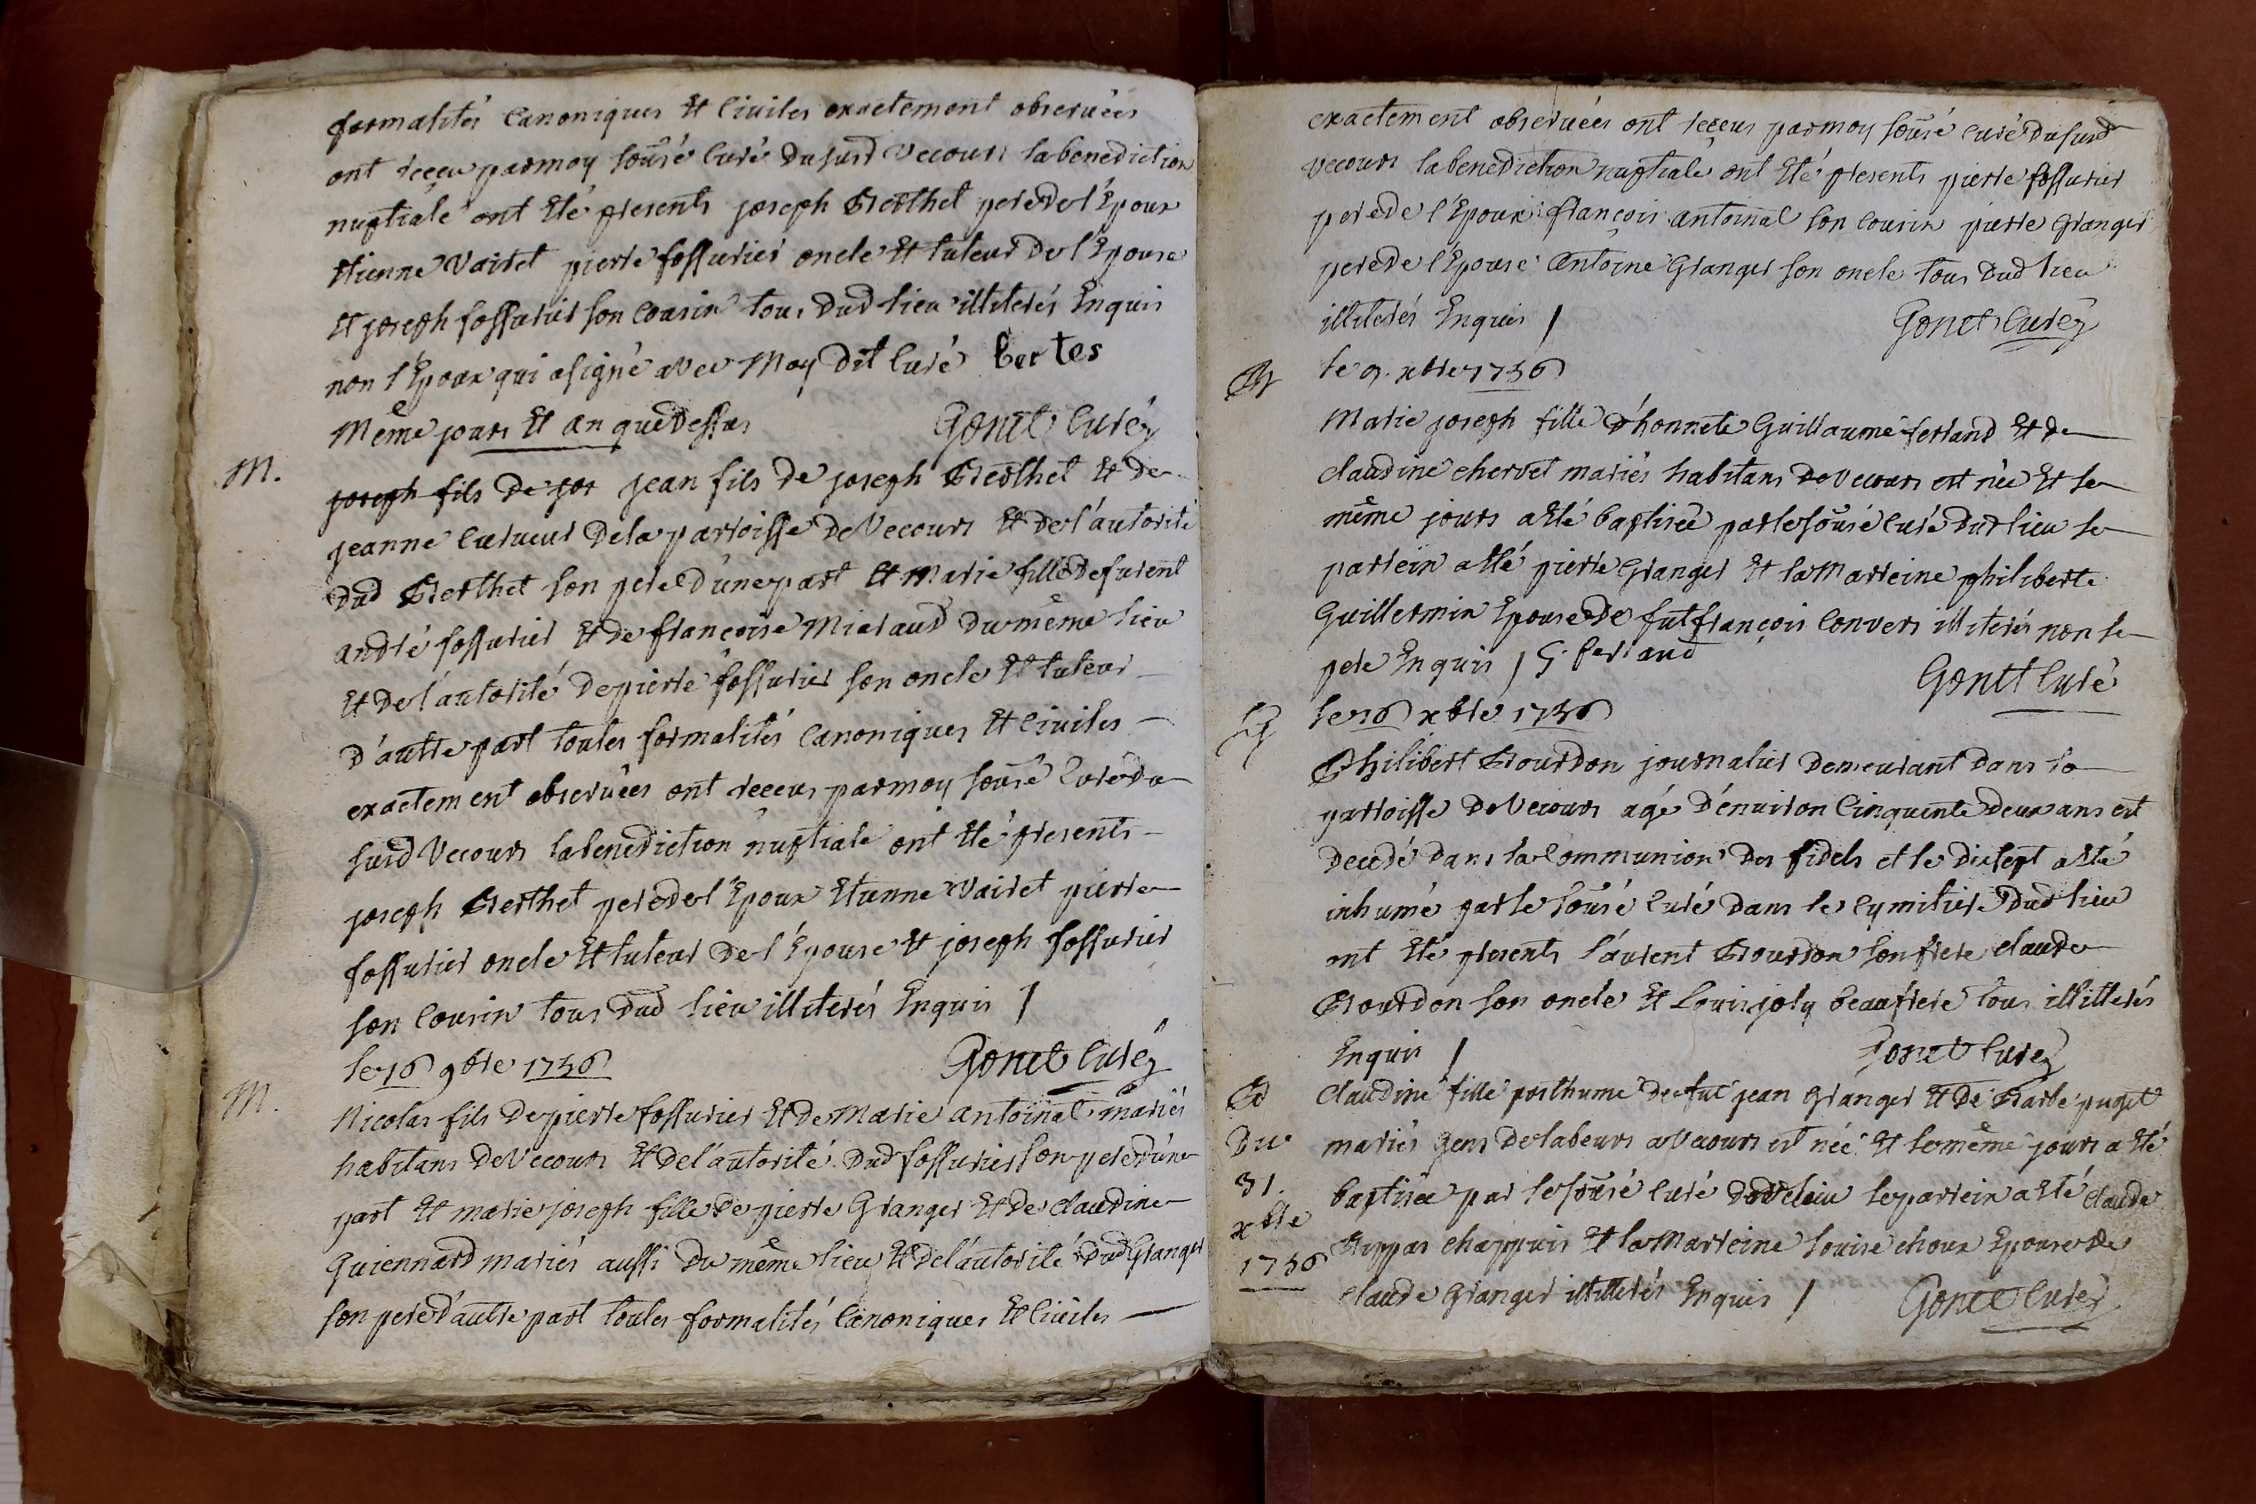 formalités Canoniques Et Civiles exactement observées
ont reçeu par moy sousé Curé du susd Vecours la benediction
nuptiale ont Eté presents joseph Berthet pere de l'Epoux
Etienne Vairet pierre fossurier oncle Et tuteur de l'Epouse
Et joseph fossurier son Cousin tous dud lieu illiterés Enquis
non l'Epoux qui a signé avec Moy dit Curé bertes
Même jours Et an que dessus Gonet Curé
M.
joseph fils de jos jean fils de joseph Berthet Et de
jeanne de la parroisse de Vecours Et de l'autorité
dud Berthet son pere d'une part Et Marie fille de furent
andré fossurier Et de françoise Miraud du même lieu
Et de l'autorité de pierre fossurier son oncle Et tuteur
d'autre part toutes formalités Canoniques Et Civiles
exactement observées ont receus par moy sousé Curé du
susd Vecours la benediction nuptiale ont Eté presents
joseph Berthet pere de l'Epoux Etienne Vairet pierre
fossurier oncle Et tuteur de l'Epouse Et joseph fossurier
son Cousin tous dud lieu illiterés Enquis /
le 16 9bre 1736 Gonet Curé
M.
Nicolas fils de pierre fossurier Et de Marie antoinat mariés
habitans de Vecours Et de l'autorité dud fossurier son pere d'une
part Et marie joseph fille de pierre Granger Et de Claudine
Guiennard mariés aussi du même lieu Et de l'autorité dud Granger
son pere d'autre part toutes formalités Canoniques Et Civiles
exactement observées ont receus par moy sousé curé du susd
Vecours la benediction nuptiale ont Eté presents pierre fossurier
pere de l'Epoux françois antoinat son cousin pierre Granger
pere de l'Epouse Antoine Granger son oncle tous dud lieu
illiterés Enquis / Gonet Curé
B
le 9. xbre 1736
Marie joseph fille d'honnete Guillaume ferland Et de
claudine chervet mariés habitans de Vecours est née Et le
même jours a eté baptisée par le sousé curé dud lieu le
parrein a Eté pierre Granger Et la Marreine philiberte
Guillermin Epouse de fut françois Convers illiterés non le
pere Enquis / G. ferland
Gonet Curé
le 16 xbre 1736
Philibert Bourdon journalier demeurant dans la
parroisse de Vecours agé d'environ Cinquente deux ans est
decedé dans la Communion des fidels et le dixsept a Eté
inhumé par le sousé Curé dans le Cymitiere dud lieu
ont Eté presents laurent Bourdon son frere claude
Bourdon son oncle Et Louis joly beaufrere tous illitterés
Enquis / Gonet Curé
B
du
31.
xbre
1736
Claudine fille posthume de fut jean Granger Et de Barbe puget
mariés gens de labeurs a Vecours est née Et le même jours a Eté
baptisée par le sousé curé le parrein a Eté claude
chappuis Et la Marreine Louise choux Epouse de
Claude Granger illitterés Enquis / Gonet Curé